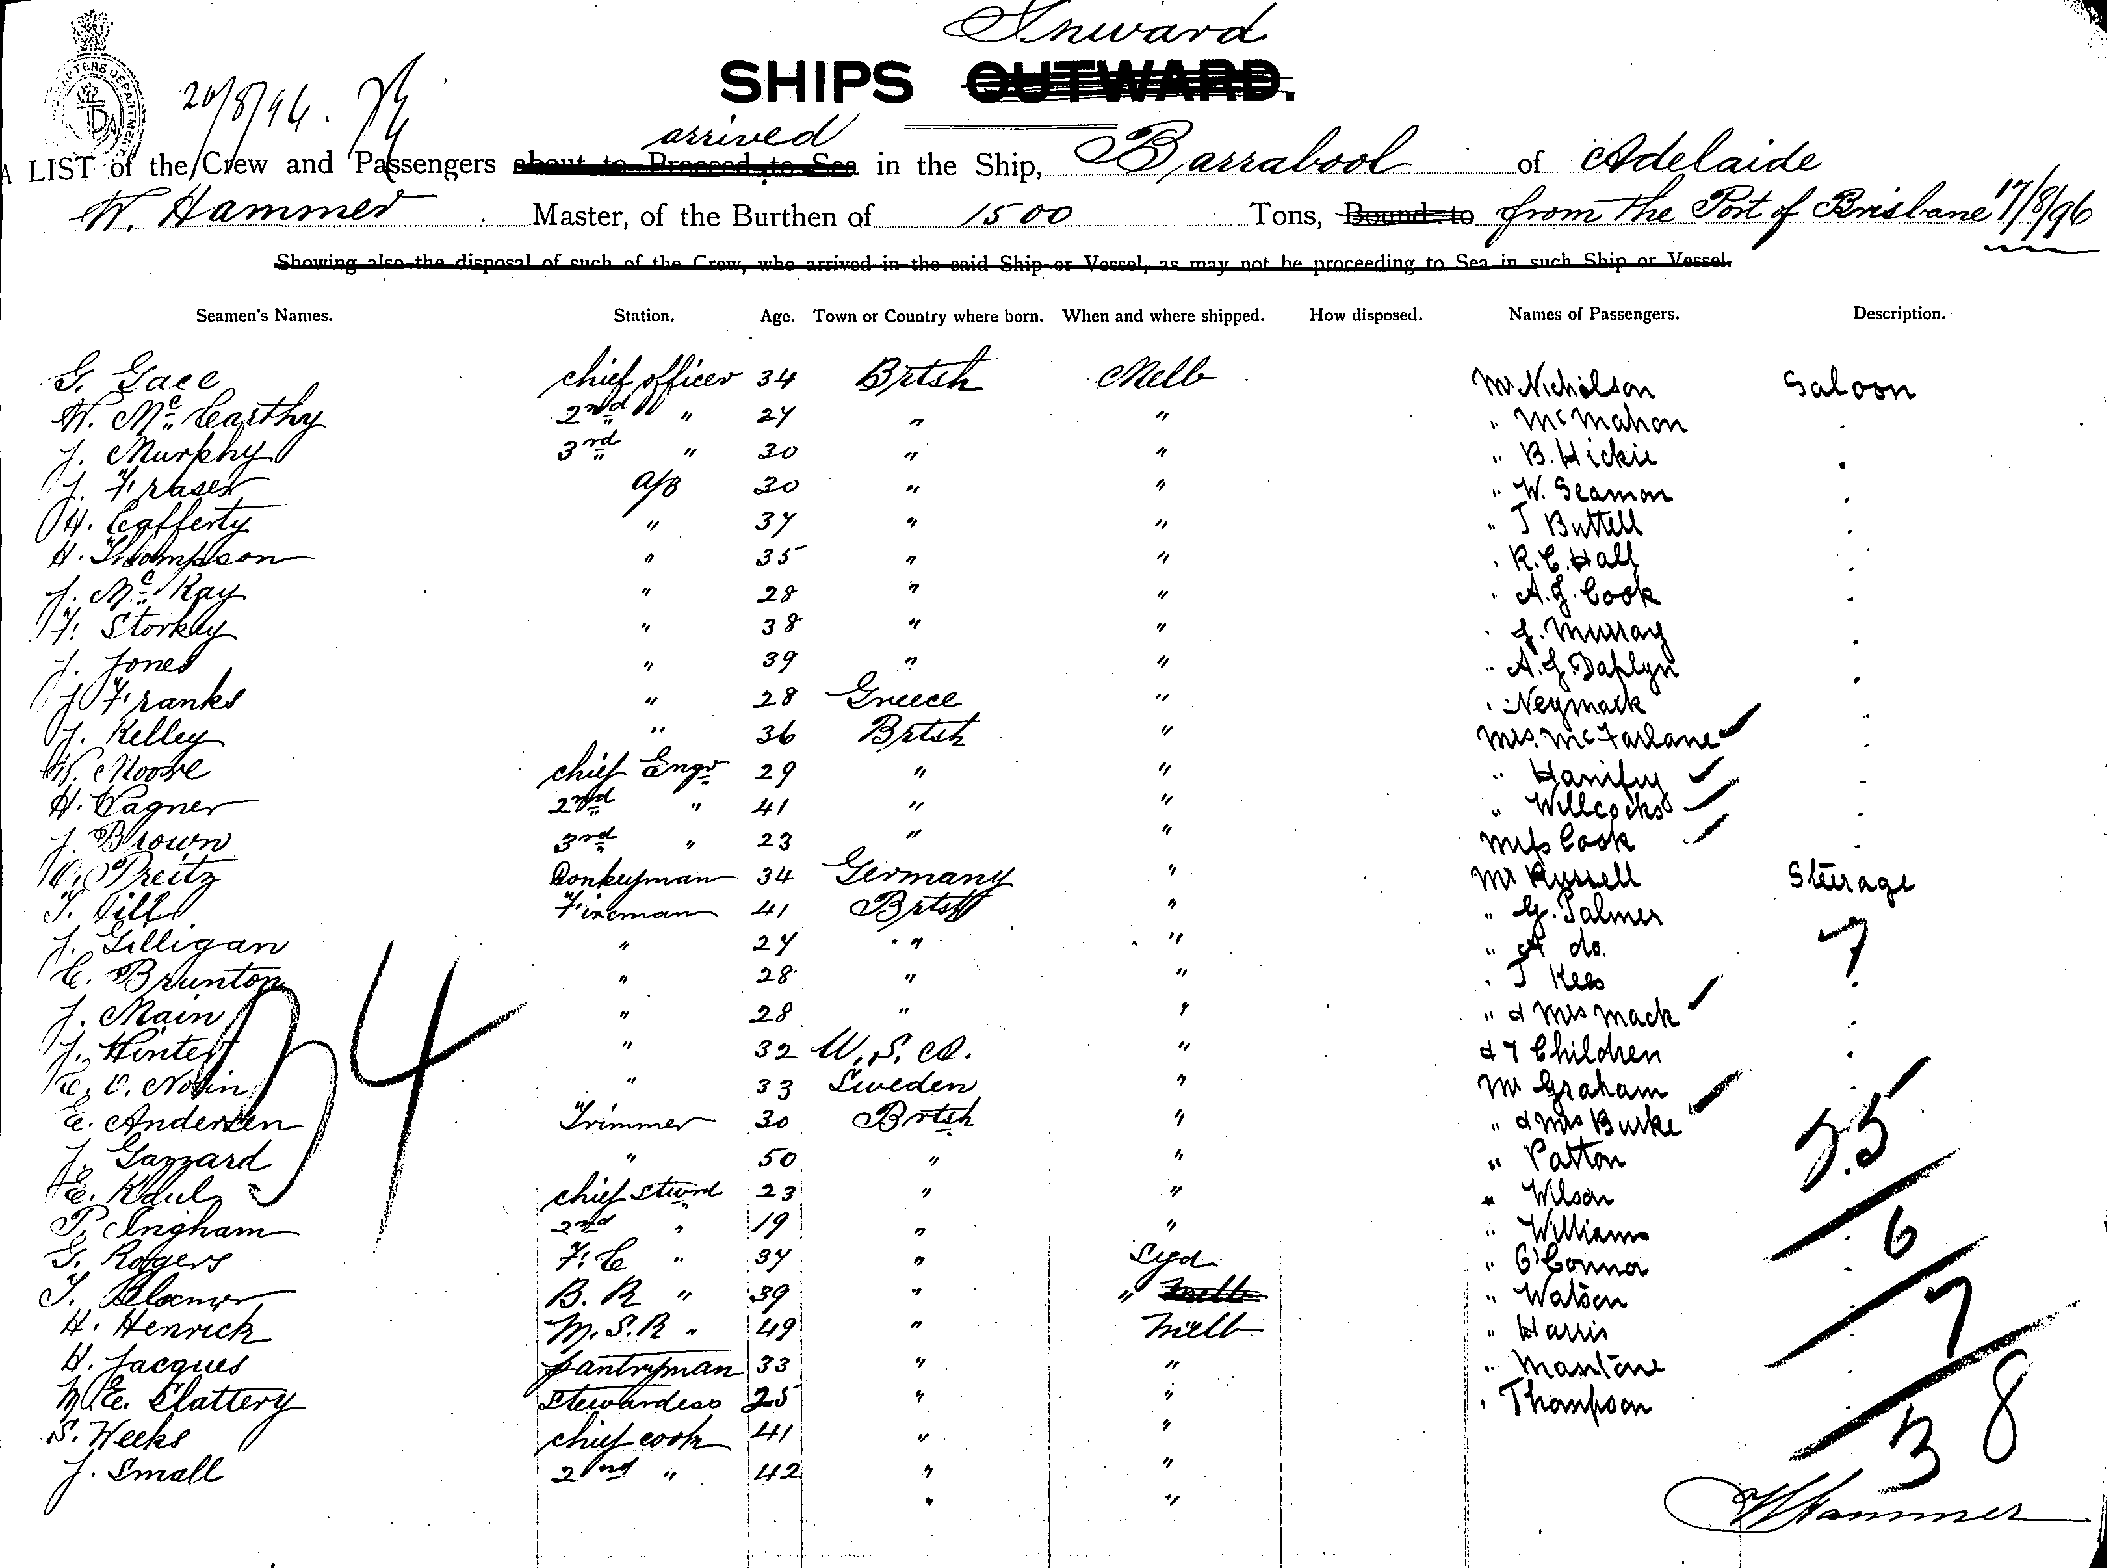 Inward
SHIPS OUTWARD.
20/8/96.
arrived
A LIST of the Crew and Passengers about to Proceed to Sea in the Ship, Barrabool of Adelaide
W. Hammer Master, of the Burthen of 1500 Tons, Bound to from the Port of Brisbane 17/8/96
Showing also the disposal of such of the Crew, who arrived in the said Ship or Vessel, as may not be proceeding to Sea in such Ship or Vessel.
Seamen's Names. Station. Age. Town or Country where born. When and where shipped. How disposed. Names of Passengers. Description.
G. Gace chief officer 34 Brtsh Melb Mr Nicholson Saloon
W. Mc Carthy 2nd " 27 " " " McMahon "
J. Murphy 3rd " 30 " " " B. Hickie "
J. Fraser a/B 30 " " " W. Seamon "
H. Cafferty " 37 " " " J Buttell "
H. Thompson " 35 " " " R. C. Hall "
J. Mc Kay " 28 " " " A. J. Cook "
F. Storkey " 38 " " " J. Murray "
J. Jones " 39 " " " A. J. Daplyn "
J Franks " 28 Greece " " Neymack "
J. Kelley " 36 Brtsh " Mrs. McFarlane "
W. Moore chief Engr 29 " " " "
H. Wagner 2nd " 41 " " " Willcocks "
J. Brown 3rd " 23 " " Miss Cook "
Preitz Donkeyman 34 Germany " Mr Russell Steerage
T. Fireman 41 Brtsh " " G. Palmer
J. Gilligan " 27 " " " A do. 7
C. Brunton " 28 " " " J Kees "
J. Main " 28 " " " & Mrs Mack "
J. " 32 U. S. A. " & 7 Children "
E. O. " 33 Sweden " Mr Graham "
E. Andersen Trimmer 30 Brtsh " " & Mrs Burke
J. Gazzard " 50 " " " Patton 25
E. chief Stwrd 23 " " " Wilson
P. Ingham 2nd " 19 " " " Williams 6
G. Rogers F. C " 37 " Syd " O'Connor
T. B. R " 39 " " Melb " Watson 7
H. Henrick M. S. R " 49 " Melb " Harris
H. Jacques pantryman 33 " " "
M. E. Slattery Stewardess 25 " " " Thompson 8
S. Weeks chief cook 41 " " 3
J. Small 2nd " 42 " "
" "
34
W Hammer